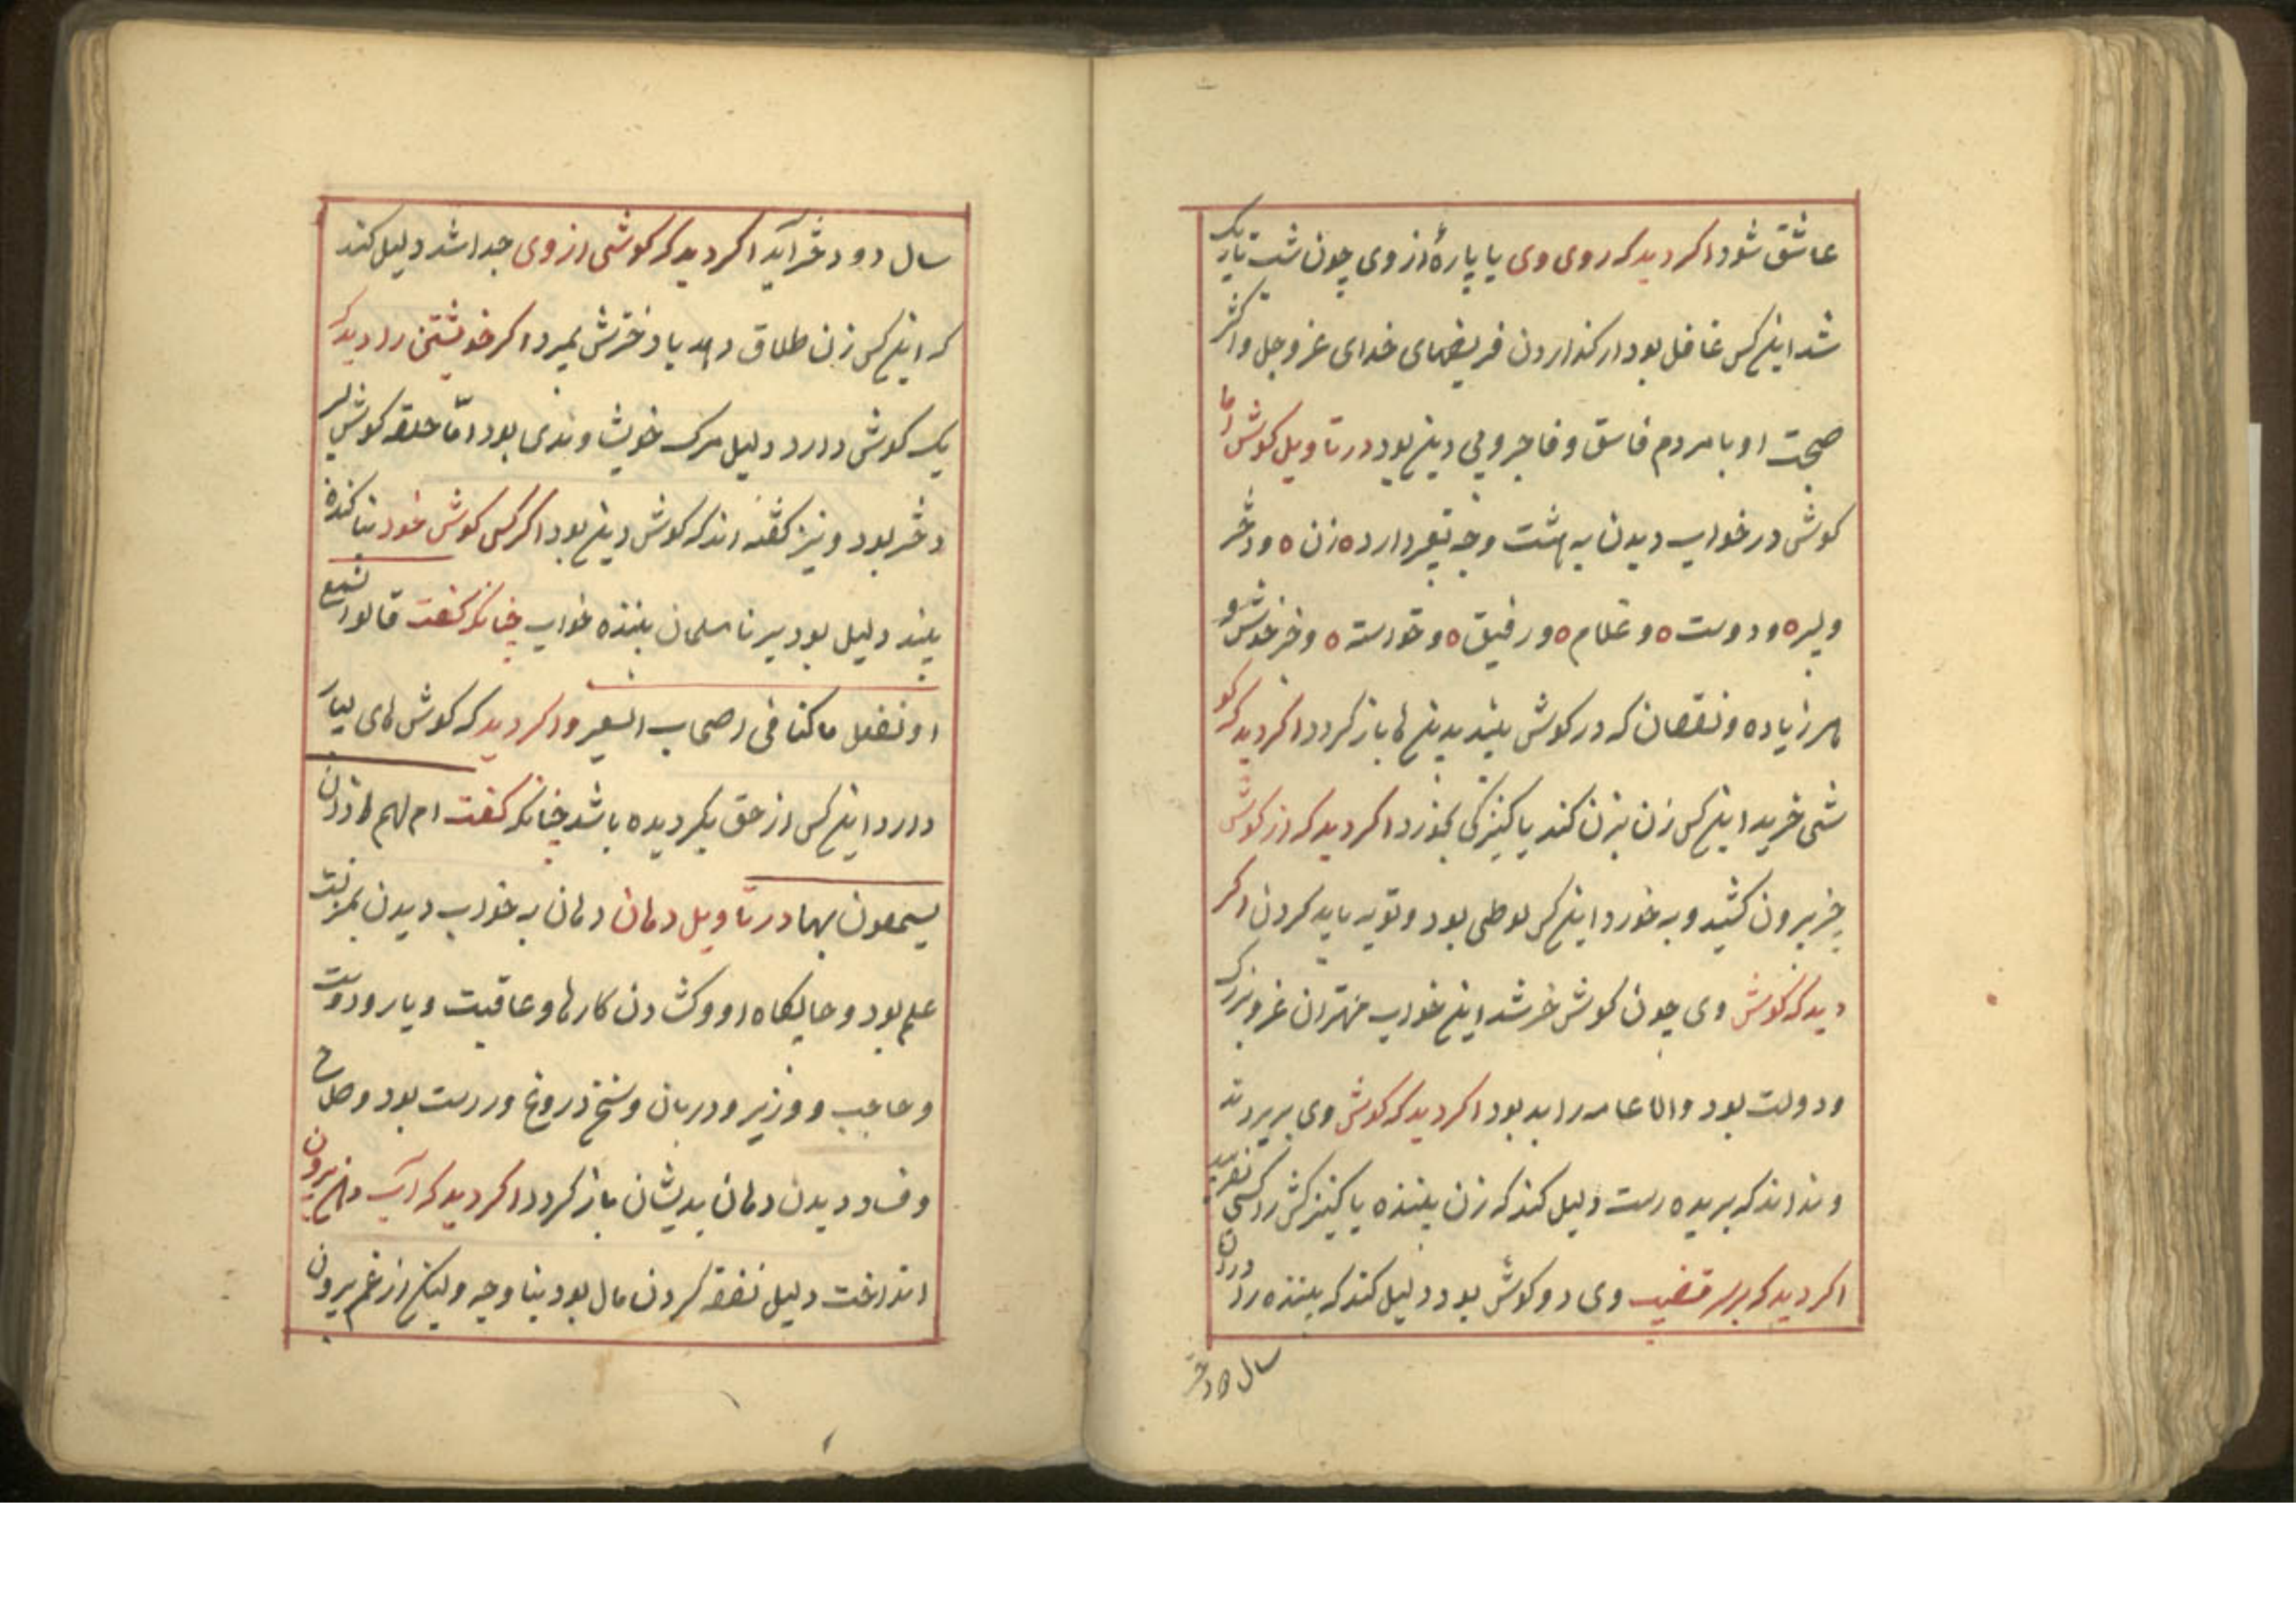 عاشق شود اکر دید که روی وی یا پارهٔ از وی چون شب تاریک
شد اینکس غافل بود از کذاردن فریضهای خدای عز و جل و اکثر
صحبت او با مردم فاسق و فاجر و بی دین بود در تاویل کوش اما
کوش در خواب دیدن به هشت وجه تعبیر دارد ه زن ه و دختر
و پسر ه و دوست ه و غلام ه و رفیق ه و خواسته ه و
هر زیاده و نقصان که در کوش بیند بدینها باز کردد اکر دید که کو
شی خرید اینکس زن بزن کند یا کنیزکی بخرد اکر دید که از کوش
چیز بیرون کشید و به خورد اینکس لوطی بود و توبه باید کردن اکر
دید که کوش وی چون کوش خر شد این خواب مهتران عز و بزرک
و دولت بود و الا عامه را بد بود اکر دید که کوش وی بریدند
و نداند که بریده است دلیل کند که زن بیننده یا کنیزکش را کسی
اکر دید که بر سر قضیب وی دو کوش بود دلیل کند که بیننده را در ان
سال دو دختر
سال دو دختر آید اکر دید که کوشی از وی جدا شد دلیل کند
که اینکس زن طلاق دهد یا دخترش بمیرد اکر خویشتن را دید که
یک کوش دارد دلیل مرک خویشاوندی بود امّا حلقه کوش پسر
دختر بود و نیز کفته اند که کوش دین بود اکر کس کوش خود بنا کنده
بیند دلیل بود بر نامسلمان بیننده خواب چنانکه کفت قالوا نسمع
او نعقل ما کنا فی اصحاب السعیر و اکر دید که کوش های بسیار
دارد اینکس از حق بکردیده باشد چنانکه کفت ام لهم اذان
یسمعون بها در تاویل دهان دهان به خواب دیدن بمنزلت
علم بود و جایکاه او و کشادن کارها و عاقبت و یار و دوست
و حاجب و وزیر و دربان و سخن دروغ و راست بود و صلاح
و فساد دیدن دهان بدیشان باز کردد اکر دید که آب دهن بیرون
انداخت دلیل نفقه کردن مال بود بنا وجه ولیکن از غم بیرون